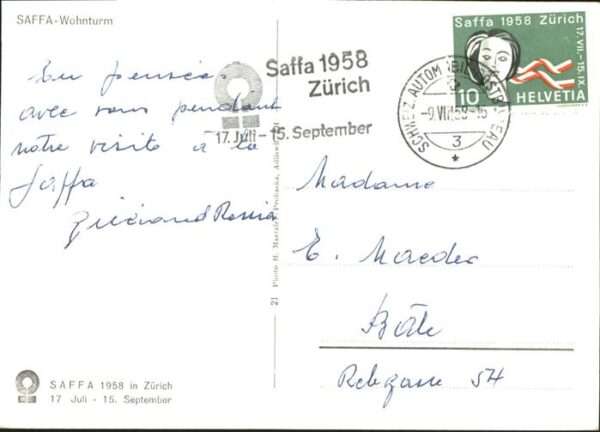 SAFFA-Wohnturm
En pensée
avec vous pendant
notre visite à la
Saffa
Saffa 1958
Zürich
17. Juli - 15. September
Saffa 1958 Zürich
17.VII.-15.IX.
10 HELVETIA
SCHWEIZ. AUTOM
3
Madame
E. Maeder
Bâle
Rebgasse 54
21 Photo H.
SAFFA 1958 in Zürich
17 Juli - 15. September